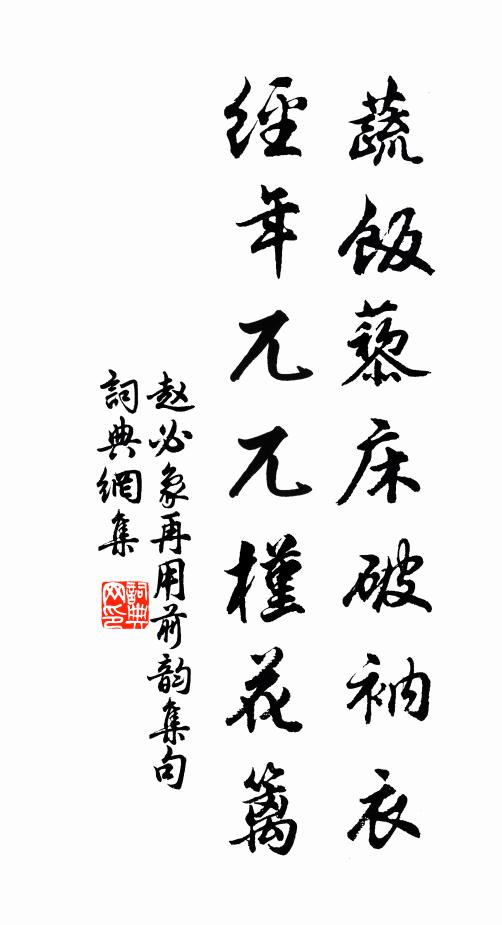 蔬飯藜床破衲衣
經年兀兀槿花籬
赵必象再用前韵集句
詞典網集
詞典网印